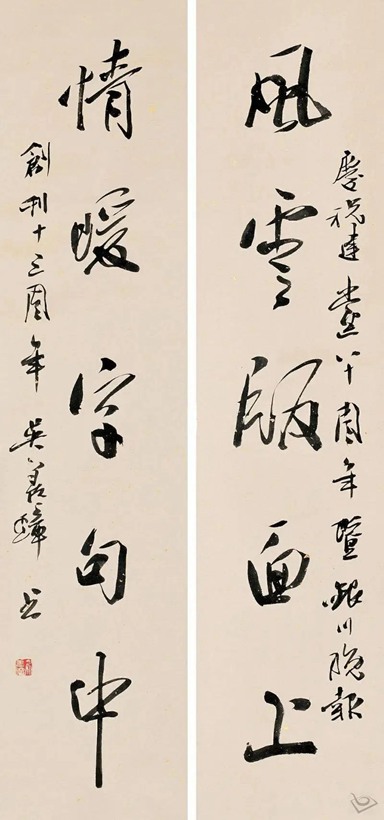 慶祝建黨八十周年暨銀川晚報
風雲版面上
情暖字句中
創刊十三周年 吴善璋书